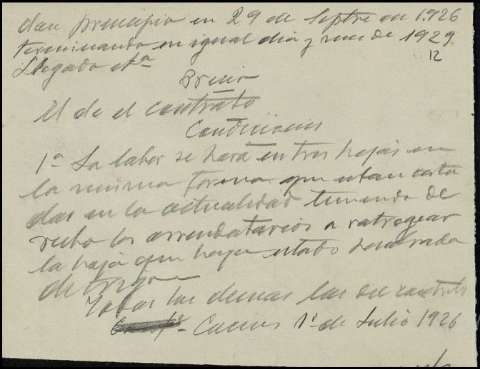 dan principio en 29 de Septre en 1926
terminando en igual dia y mes de 1929.
Llegado eta 12
Precio
El de el contrato
Condiciones
1ª La labor se hará en tres hojas en
la misma forma que estan corta
das en la actualidad teniendo de
recho los arrendatarios a
la hoja que haya estado sembrada
de trigo
Todas las demas las del contrato
Caceres 1º de Julio 1926